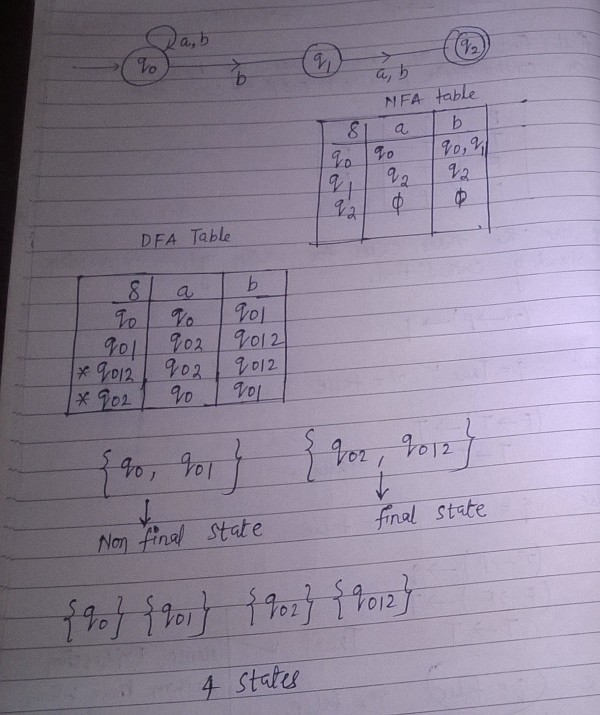 a, b
q0 b q1 a, b q2
NFA table
δ a b
q0 q0 q0, q1
q1 q2 q2
q2 ϕ ϕ
DFA Table
δ a b
q0 q0 q01
q01 q02 q012
* q012 q02 q012
* q02 q0 q01
{q0, q01} {q02, q012}
↓ ↓
Non final state final state
{q0} {q01} {q02} {q012}
4 states